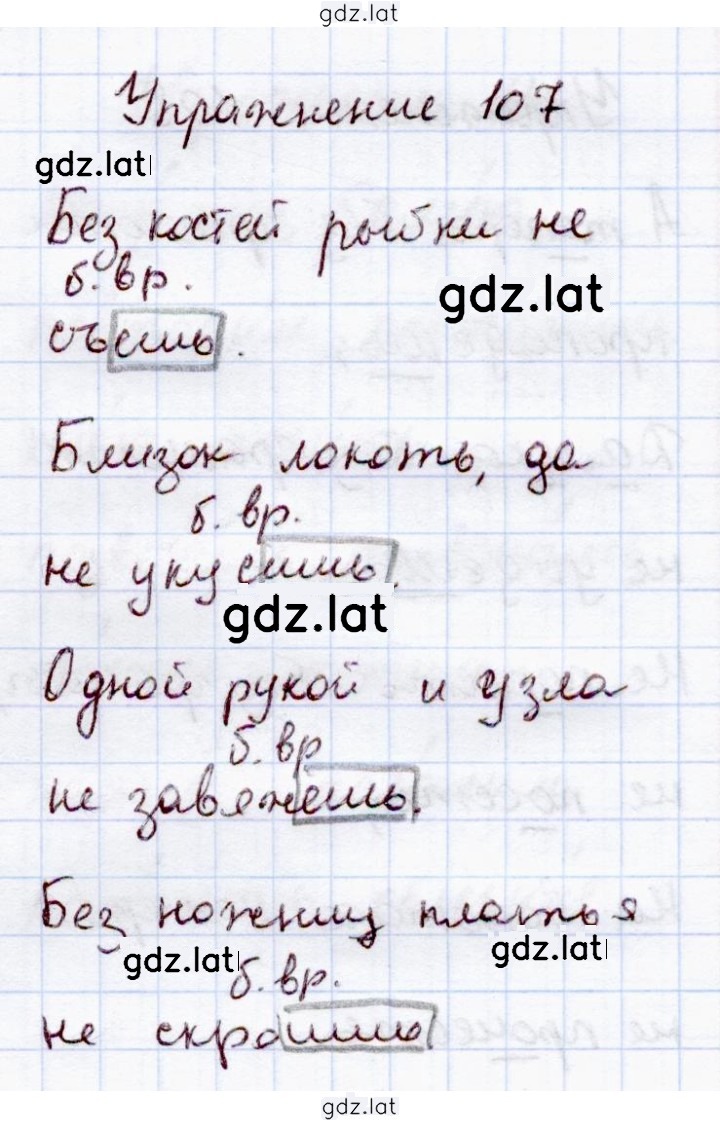 gdz.lat
Упражнение 107
gdz.lat
Без костей рыбки не
б. вр.
gdz.lat
съешь.
Близок локоть, да
б. вр.
не укусишь.
gdz.lat
Одной рукой и узла
б. вр
не завяжешь.
Без ножниц платья
gdz.lat
gdz.lat
б. вр.
не скроишь
gdz.lat